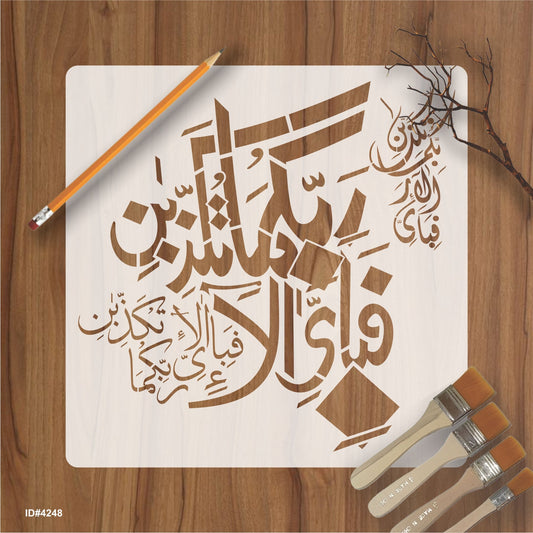 فَبِأَيِّ آلَاءِ
رَبِّكُمَا تُكَذِّبَانِ
فَبِأَيِّ آلَاءِ
رَبِّكُمَا تُكَذِّبَانِ
فَبِأَيِّ آلَاءِ
رَبِّكُمَا تُكَذِّبَانِ
ID#4248